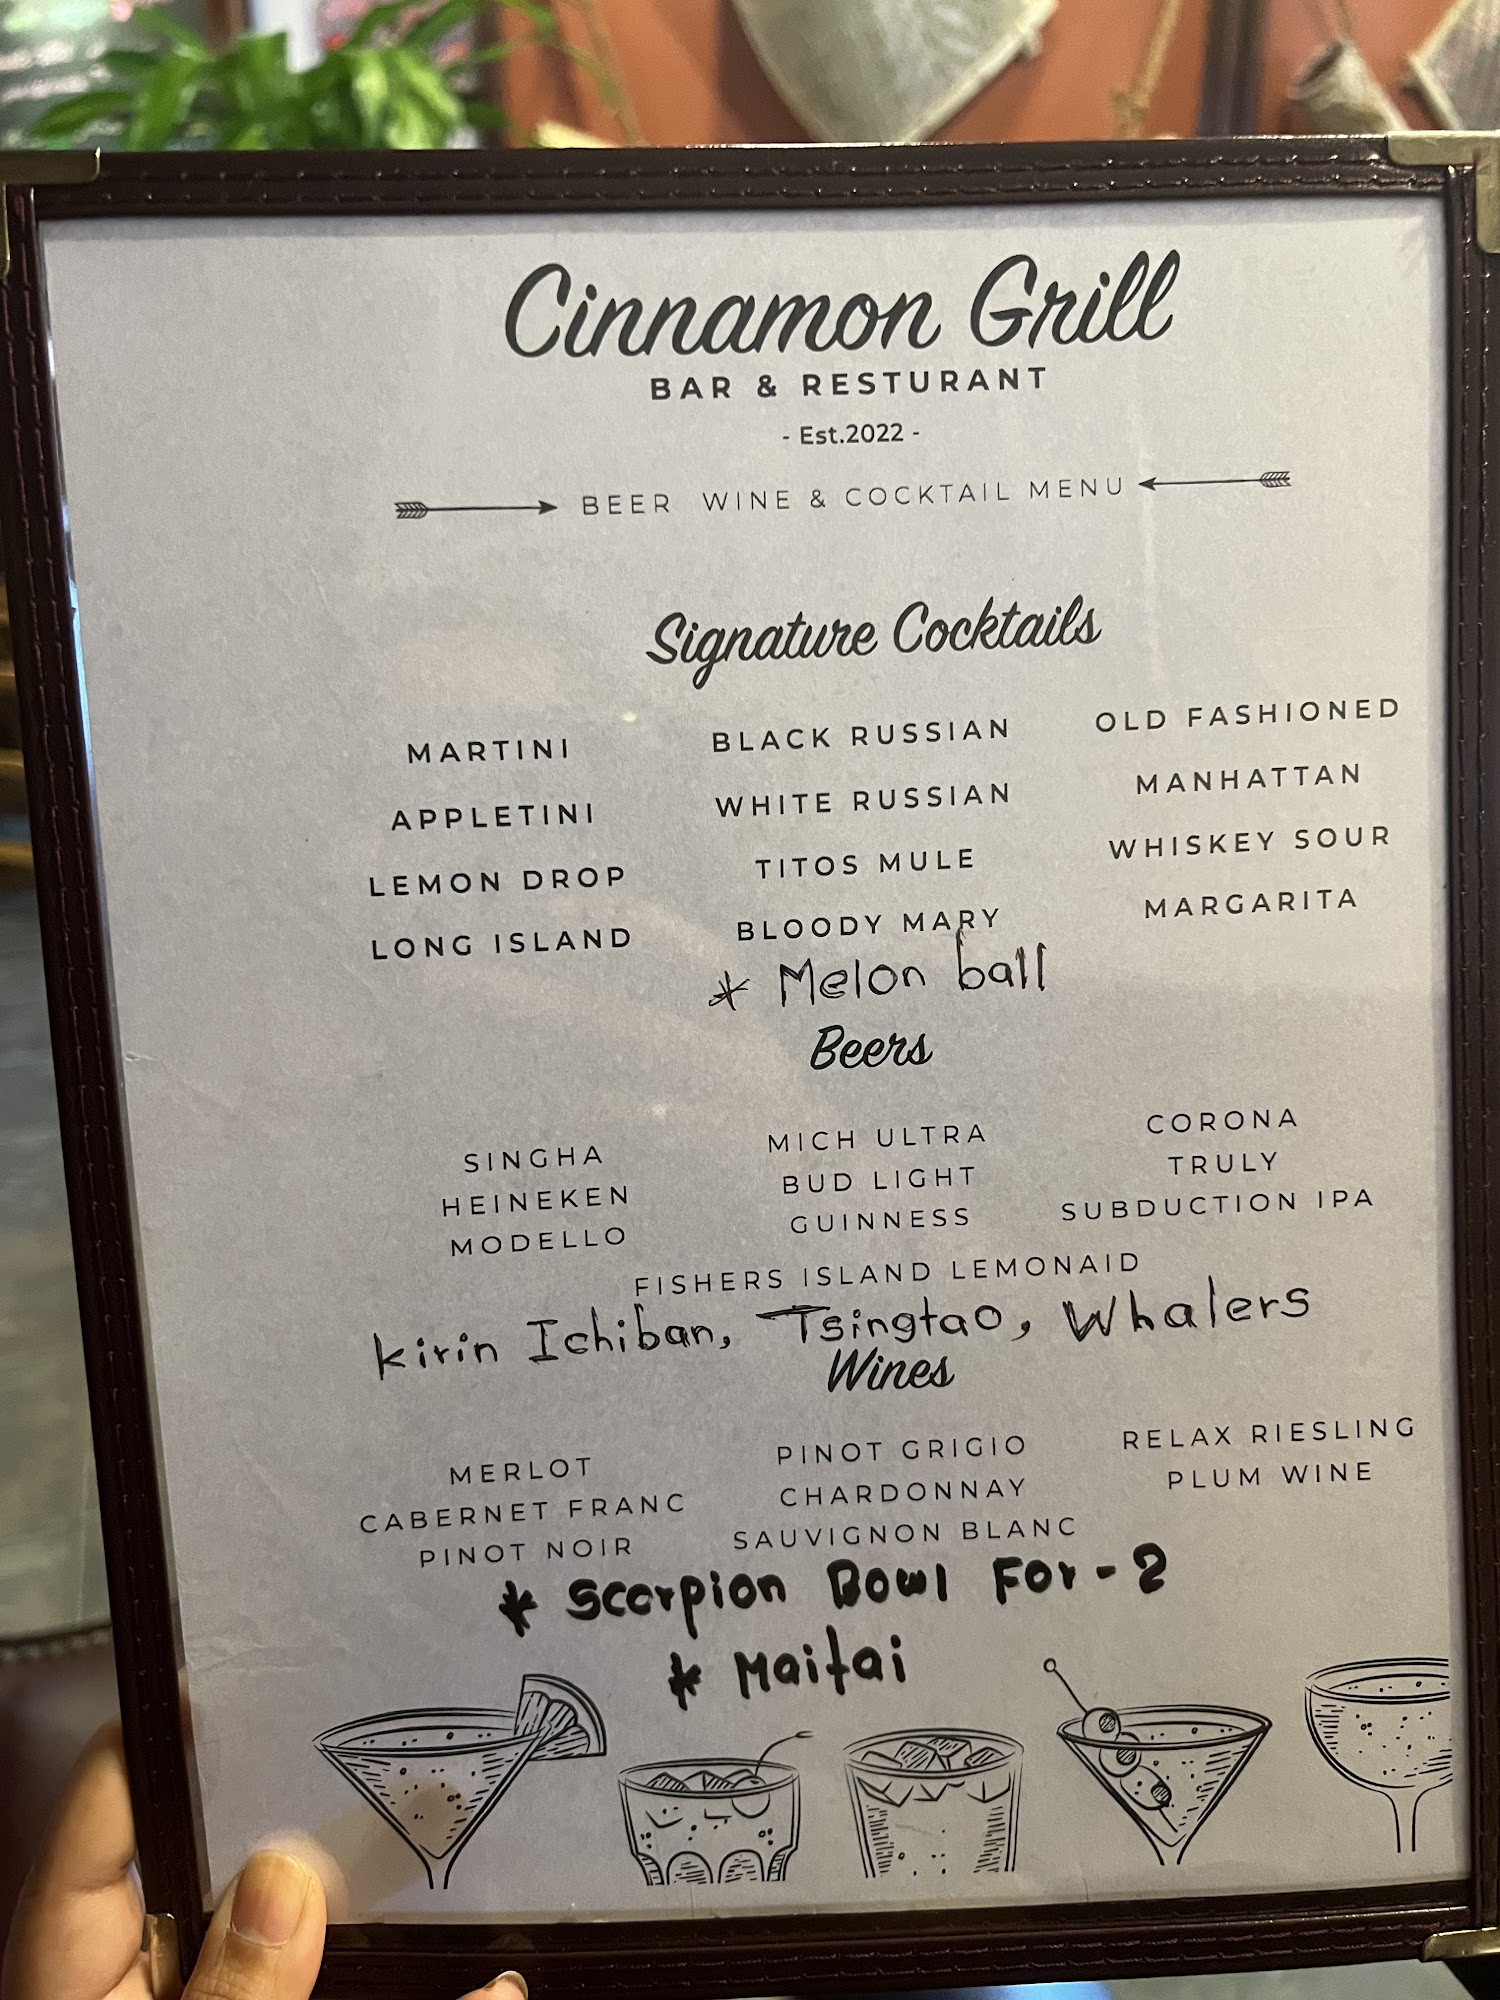 Cinnamon Grill
BAR & RESTURANT
- Est.2022 -
BEER WINE & COCKTAIL MENU
Signature Cocktails
MARTINI BLACK RUSSIAN OLD FASHIONED
APPLETINI WHITE RUSSIAN MANHATTAN
LEMON DROP TITOS MULE WHISKEY SOUR
LONG ISLAND BLOODY MARY MARGARITA
* Melon ball
Beers
SINGHA MICH ULTRA CORONA
HEINEKEN BUD LIGHT TRULY
MODELLO GUINNESS SUBDUCTION IPA
FISHERS ISLAND LEMONAID
Kirin Ichiban, Tsingtao, Whalers
Wines
MERLOT PINOT GRIGIO RELAX RIESLING
CABERNET FRANC CHARDONNAY PLUM WINE
PINOT NOIR SAUVIGNON BLANC
* Scorpion Bowl For-2
* Maitai